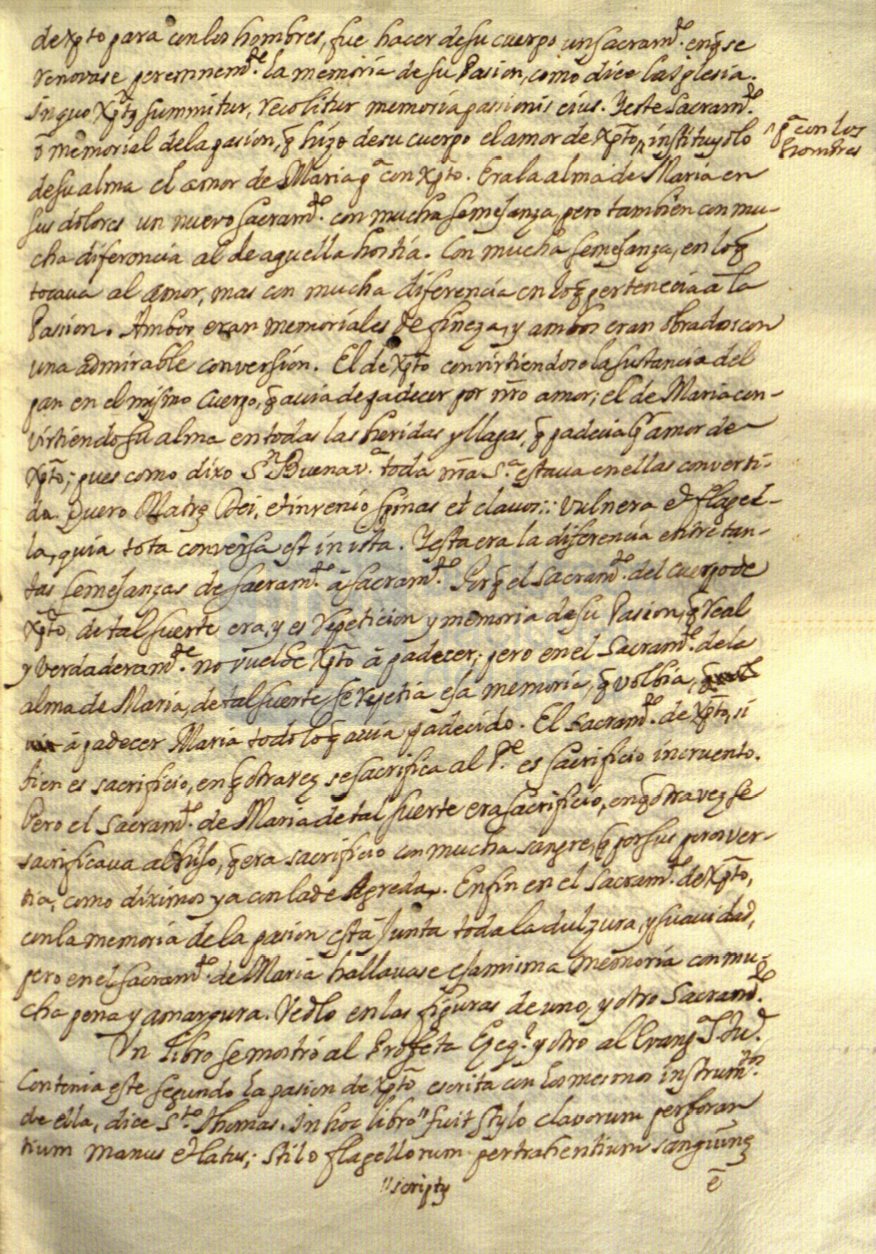 de xpto para con los hombres, fue hacer de su cuerpo un sacram.to en q̄ se
renovase perennem.te la memoria de su Pasion, como dice la iglesia.
in quo xptꝰ summitur, recolitur memoria passionis eius. Y este sacram.to
ō memorial de la pasion, q̄ hizo de su cuerpo el amor de xpto, ^ instituyolo
^ p.a con los
hombres
de su alma el amor de Maria p.a con xpto. Era la alma de Maria en
sus dolores un nuevo sacram.to con mucha semejanza, pero tambien con mu-
cha diferencia al de aquella hostia. Con mucha semejanza, en lo q̄
tocava al amor, mas con mucha diferencia en lo q̄ pertenecia a la
Passion. Ambos eran memoriales de fineza, y ambos eran obrados con
una admirable conversion. El de xpto convirtiendose la sustancia del
pan en el mismo cuerpo, q̄ avia de padecer por nr̄o amor; el de Maria con-
virtiendo su alma en todas las heridas y llagas, q̄ padecia el amor de
xpto; pues como dixo S.n Buenav.a toda nr̄a S.a estava en ellas converti-
da. Quero Matrē Dei, et invenio spinas et clavos:: vulnera et flagel-
la, quia tota conversa est in ista. Y esta era la diferencia entre tan-
tas semejanzas de sacram.to á sacram.to. Por q̄ el sacram.to del cuerpo de
xpto, de tal suerte era, y es repeticion y memoria de su Pasion, q̄ real
y verdaderam.te no vuelve xpto á padecer; pero en el sacram.to de la
alma de Maria, de tal suerte se repetia esa memoria, q̄ volbia,
á padecer Maria todo lo q̄ avia padecido. El sacram.to de xpto, si
bien es sacrificio, en q̄ otra vez se sacrifica al P.e es sacrificio incruento.
Pero el sacram.to de Maria de tal suerte era sacrificio, en q̄ otra vez se
sacrificava al hijo, q̄ era sacrificio con mucha sangre, q̄ por sus poros ver-
tia, como diximos ya con la de Agreda. En fin en el sacram.to de xpto,
con la memoria de la pasion está junta toda la dulzura, y suavidad,
pero en el sacram.to de Maria hallavase esa misma memoria con mu-
cha pena y amargura. Vedlo en las figuras de uno, y otro sacram.to
Un libro se mostró al Profeta Ezeq.l y otro al Evang.ta Ju.o
Contenia este segundo la pasion de xpto escrita con los mesmos instrum.tos
de ella, dice S.to Thomas. In hoc libro " fuit stylo clavorum perforan
tium manus et latus; stilo flagellorum pertrahentium sanguinē
" scriptꝰ
ē